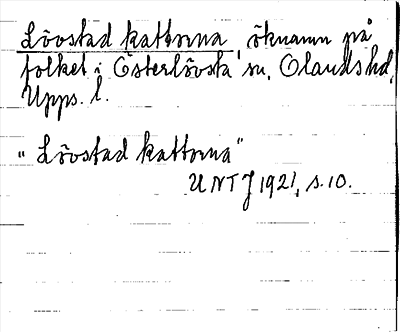 Lövstad kattorna, öknamn på
folket i Österlövsta sn, Olands hd,
Upps. l.
"Lövstad kattorna"
UNTJ 1921, s. 10.